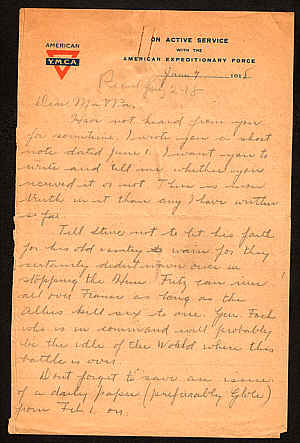 AMERICAN
Y.M.C.A
ON ACTIVE SERVICE
WITH THE
AMERICAN EXPEDITIONARY FORCE
June 7 1918
2 - 18
Dear Ma & Pa
Have not heard from you
for sometime. I wrote you a short
note dated June 1. I want you to
write and tell me whether you
received it or not. There is more
truth in it than any I have written
so far.
Tell Steve not to let his faith
for his old country for they
certainly didnt over in
stopping the Hun. Fritz can run
all over France as long as the
Allies kill six to one. Gen. Foch
who is in command will probably
be the idle of the World when this
battle is over.
Dont forget to save an issue
of a daily paper (preferably Globe)
from Feb 1, on.